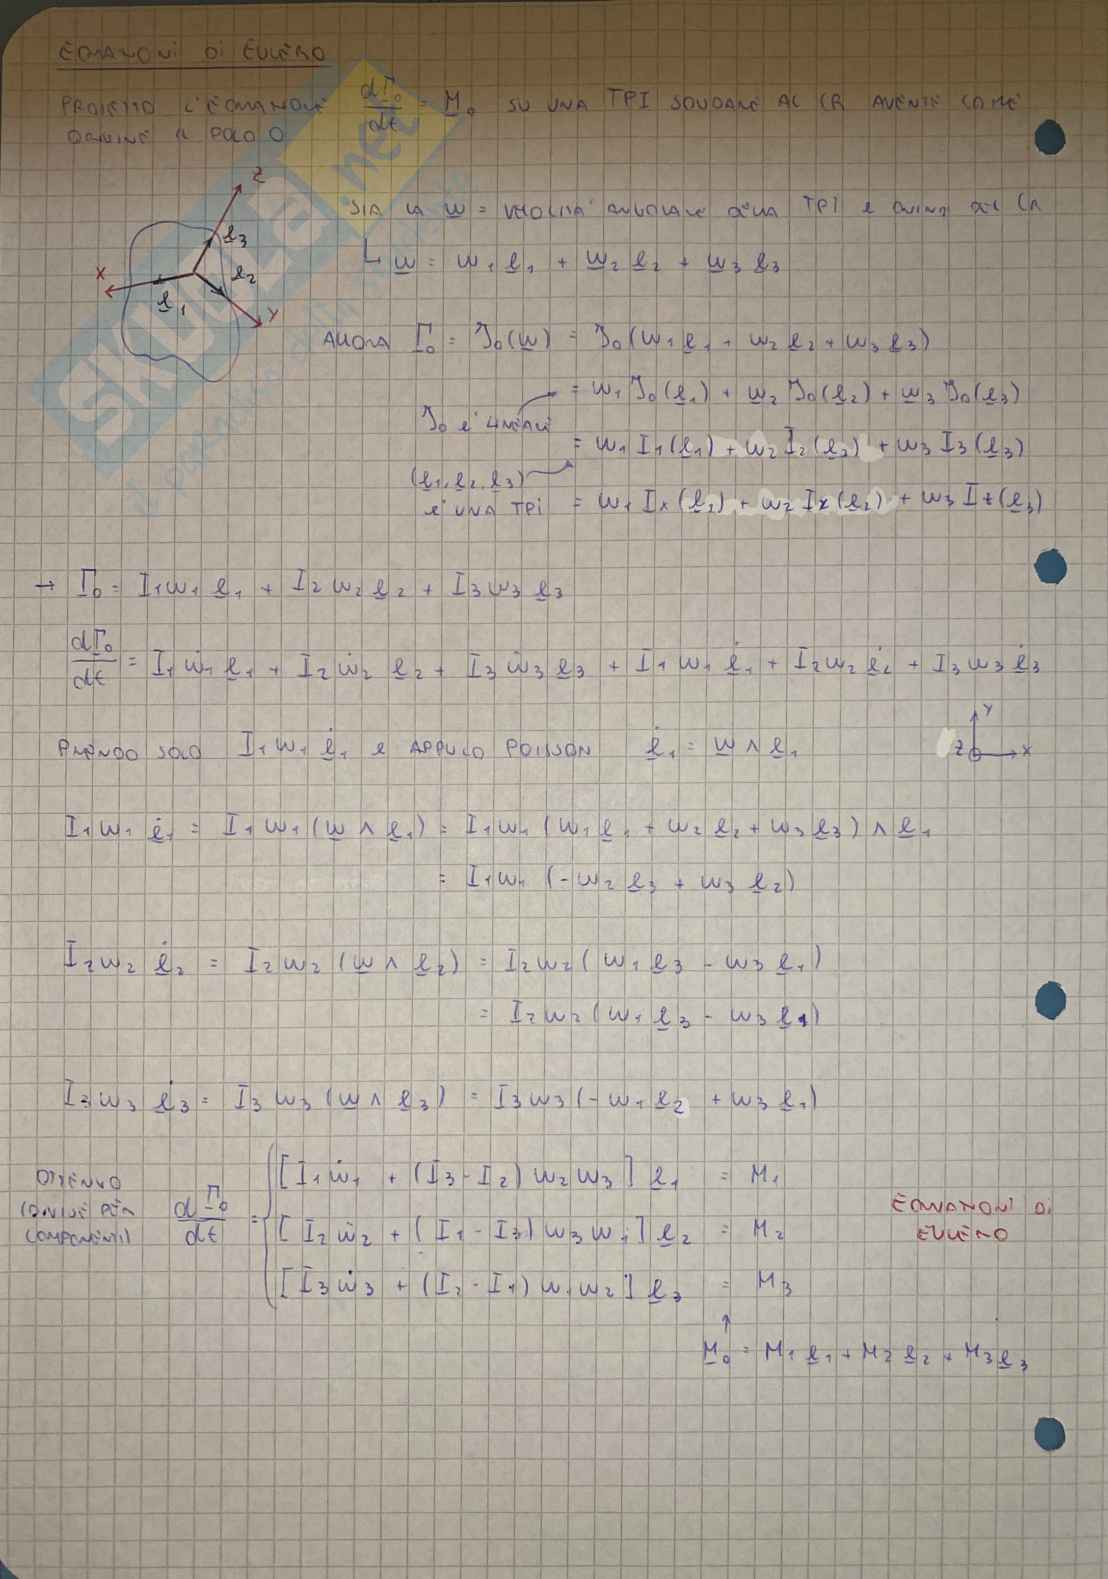 EQUAZIONI DI EULERO
PROIETTO L'EQUAZIONE dΓ₀/dt = M₀ SU UNA TPI SOLIDALE AL CR AVENTE COME
ORIGINE IL POLO O
SIA LA w = VELOCITA' ANGOLARE DELLA TPI E QUINDI DEL CR
↳ w = w₁ e₁ + w₂ e₂ + w₃ e₃
Z
e₃
X
e₂
e₁
Y
ALLORA Γ₀ = J₀(w) = J₀(w₁e₁ + w₂e₂ + w₃e₃)
= w₁J₀(e₁) + w₂J₀(e₂) + w₃J₀(e₃)
J₀ E' LINEARE
= w₁I₁(e₁) + w₂I₂(e₂) + w₃I₃(e₃)
(e₁, e₂, e₃)
E' UNA TPI = w₁Ix(e₂) + w₂Ix(e₂) + w₃Iz(e₃)
→ Γ₀ = I₁w₁e₁ + I₂w₂e₂ + I₃w₃e₃
dΓ₀/dt = I₁ẇ₁e₁ + I₂ẇ₂e₂ + I₃ẇ₃e₃ + I₁w₁ė₁ + I₂w₂ė₂ + I₃w₃ė₃
PRENDO SOLO I₁w₁ė₁ E APPLICO POISSON ė₁ = w ∧ e₁
Y
Z X
I₁w₁ė₁ = I₁w₁(w ∧ e₁) = I₁w₁(w₁e₁ + w₂e₂ + w₃e₃) ∧ e₁
= I₁w₁(-w₂e₃ + w₃e₂)
I₂w₂ė₂ = I₂w₂(w ∧ e₂) = I₂w₂(w₁e₃ - w₃e₁)
= I₂w₂(w₁e₃ - w₃e₁)
I₃w₃ė₃ = I₃w₃(w ∧ e₃) = I₃w₃(-w₁e₂ + w₃e₁)
OTTENGO
(DIVISE PER
COMPONENTI)
dΓ₀/dt =
[I₁ẇ₁ + (I₃-I₂)w₂w₃]e₁ = M₁
[I₂ẇ₂ + (I₁-I₃)w₃w₁]e₂ = M₂
[I₃ẇ₃ + (I₂-I₁)w₁w₂]e₃ = M₃
EQUAZIONI DI
EULERO
↑
M₀ = M₁e₁ + M₂e₂ + M₃e₃
SKUOLA.net